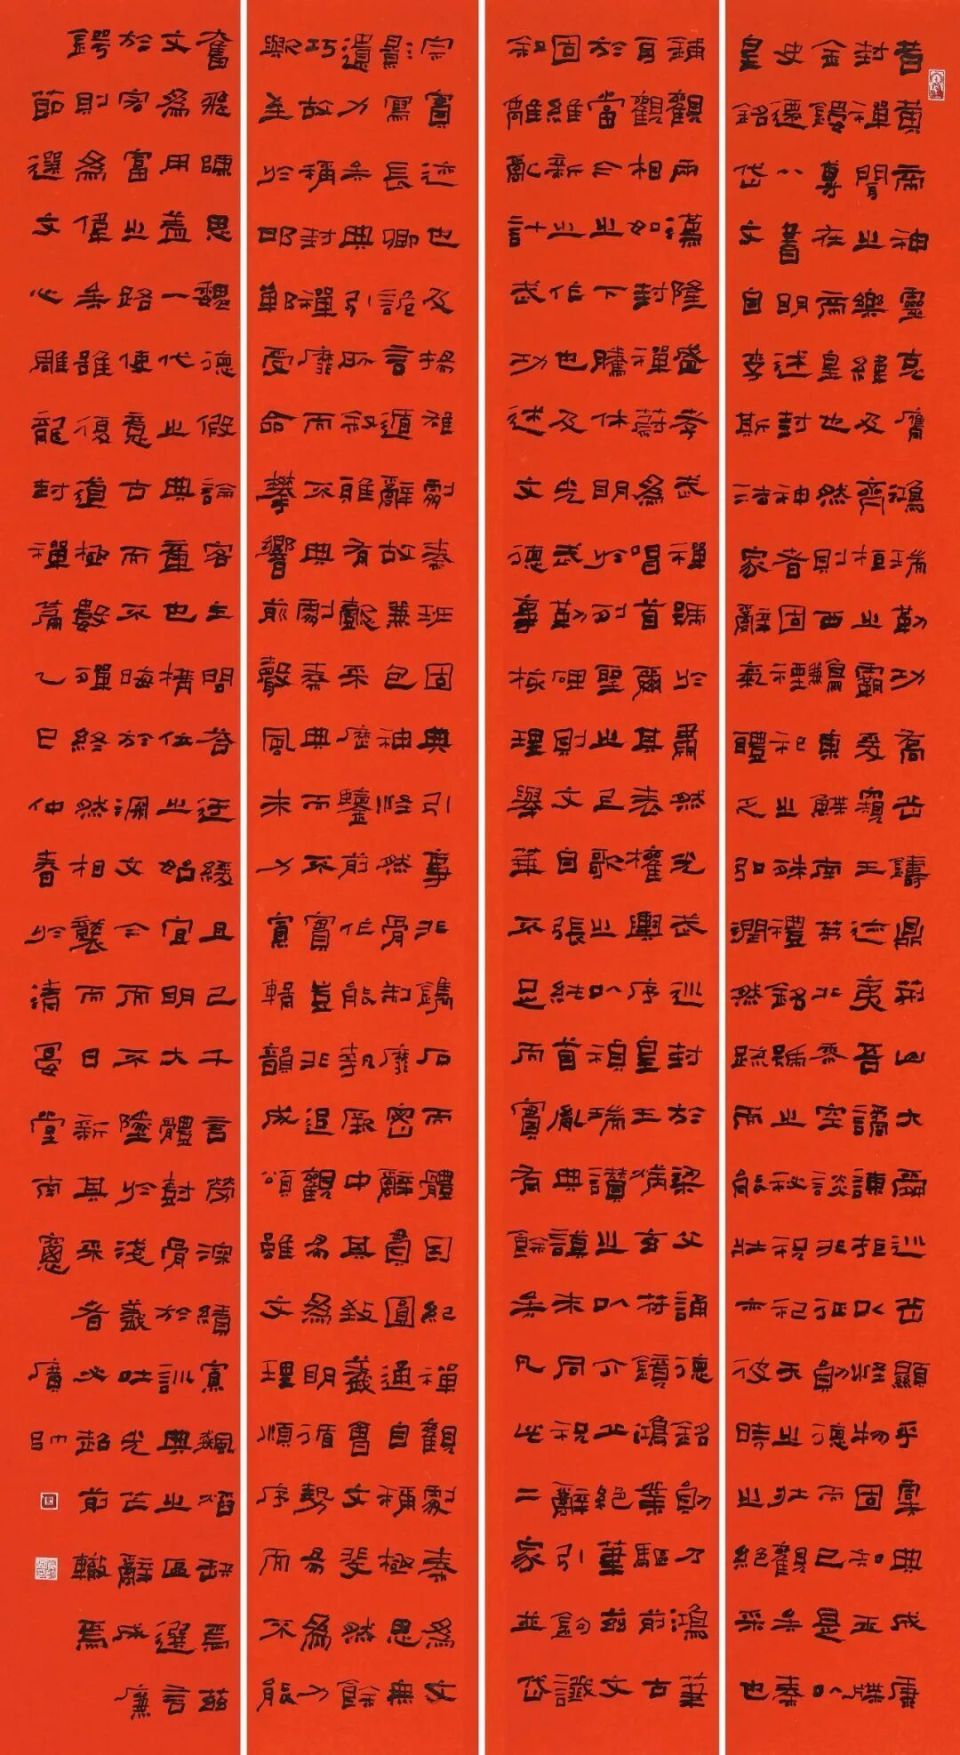 昔黄帝神靈克膺鴻瑞勒功喬岳鑄鼎荆山大爾巡岳顯乎虞典成康
封禪聞之樂緯及齊桓之霸爰窺王迹夷吾譎諫拒以怪物固知玉牒
金鏤專在帝皇也然則西鶼東鰈南茅北黍空談非征勛德而已是以
史遷八書明述封神者固禋祀之殊禮銘號之秘祝祀天之壯觀矣秦
皇銘岱文自李斯法家辭氣體乏弘潤然疏而能壯亦彼時之絶采也
鋪觀兩漢隆盛孝武禪號於肅然光武巡封於梁父誦德銘勛乃鴻筆
耳觀相如封禪蔚爲唱首爾其表權輿序皇王炳玄符鏡鴻業驅前古
於當今之下騰休明於列聖之上歌之以禎瑞讃之以介丘絶筆兹文
固維新之作也及光武勒碑則文自張純首胤典謨末同祝辭引鉤讖
叙離亂計武功述文德事核理舉華不足而實有餘矣凡此二家並岱
宗實迹也及揚雄劇秦班固典引事非鐫石而體因紀禪觀劇秦爲文
影寫長卿詭言遁辭故兼包神怪然骨制靡密辭貫圓通自稱極思無
遺力矣典引所叙雅有懿采歷鑒前作能執厥中其致義會文斐然餘
巧故稱封禪靡而不典劇秦典而不實豈非追觀易爲明循勢易爲力
歟至於邯鄲受命攀響前聲風末力寡輯韻成頌雖文理順序而不能
奮飛陳思魏德假論客主問答迂緩且已千言勞深績寡飆焰缺焉兹
文爲用蓋一代之典章也構位之始宜明大體樹骨於訓典之區選言
於宏富之路使意古而不晦於深文今而不墜於淺義吐光芒辭成廉
鍔則爲偉矣雖復道極數殫終然相襲而日新其采者必超前轍焉
節選文心雕龍封禪篇乙巳仲春於清宴堂南窗廣